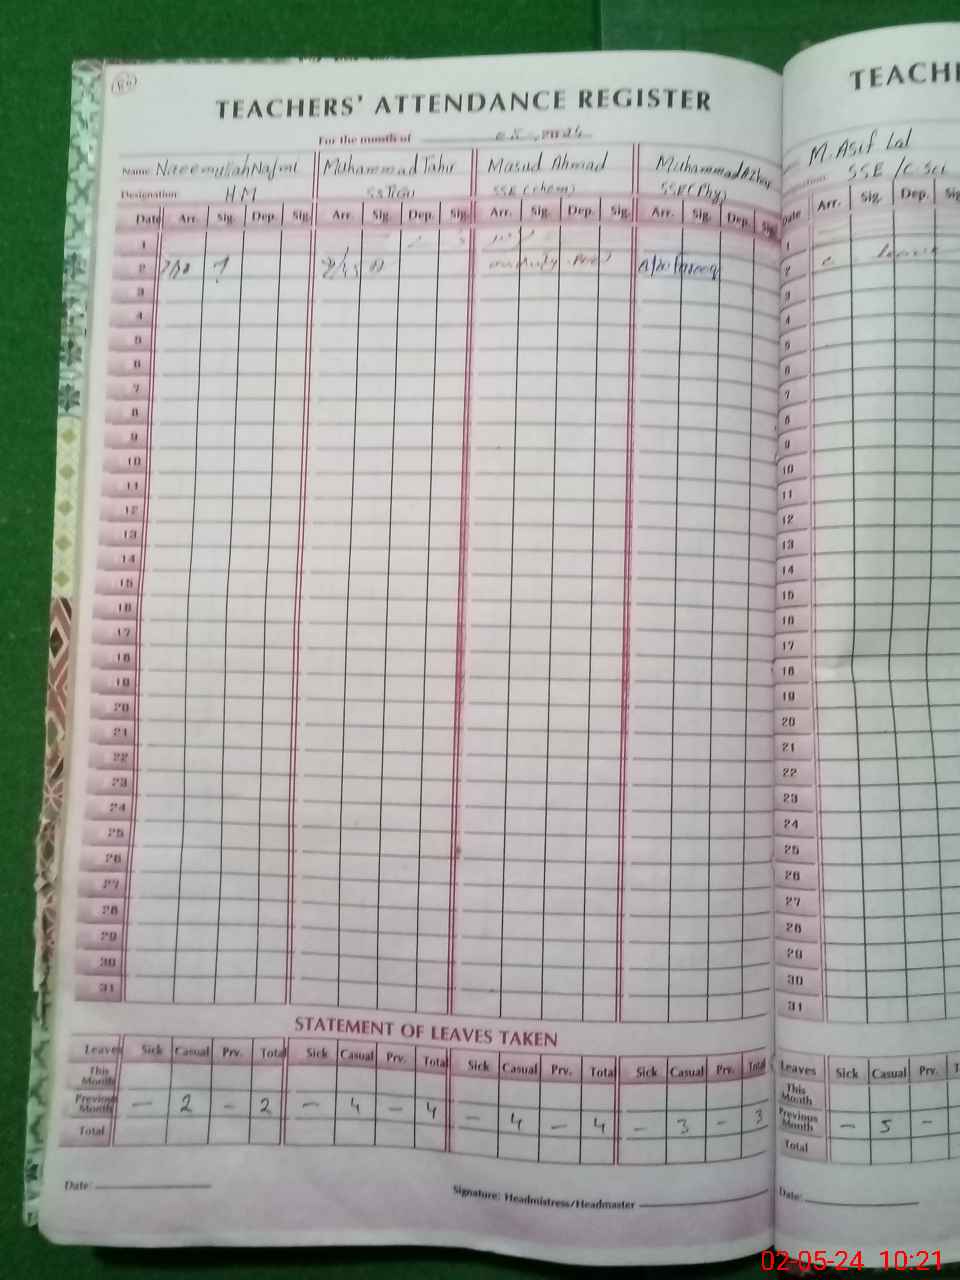 TEACHERS' ATTENDANCE REGISTER
For the month of
Name Naeemullah Najmi Muhammad Tahir Masud Ahmad Muhammad Azhar
Designation HM SSE(chem) SSE(Phy)
Date Arr. Sig. Dep. Sig. Arr. Sig. Dep. Sig. Arr. Sig. Dep. Sig. Arr. Sig. Dep. Sig.
1
2
3
4
5
6
7
8
9
10
11
12
13
14
15
16
17
18
19
20
21
22
23
24
25
26
27
28
29
30
31
STATEMENT OF LEAVES TAKEN
Leaves Sick Casual Prv. Total Sick Casual Prv. Total Sick Casual Prv. Total Sick Casual Prv. Total
This Month
Previous Month — 2 - 2 — 4 - 4 — 4 — 4 — 3 - 3
Total
Date:
Signature: Headmistress/Headmaster
TEACH
M. Asif Lal
SSE / C.Sci
Date Arr. Sig. Dep. Sig
1
2 c. leave
3
4
5
6
7
8
9
10
11
12
13
14
15
16
17
18
19
20
21
22
23
24
25
26
27
28
29
30
31
Leaves Sick Casual Prv. T
This Month
Previous Month — 5 -
Total
Date:
02-05-24 10:21